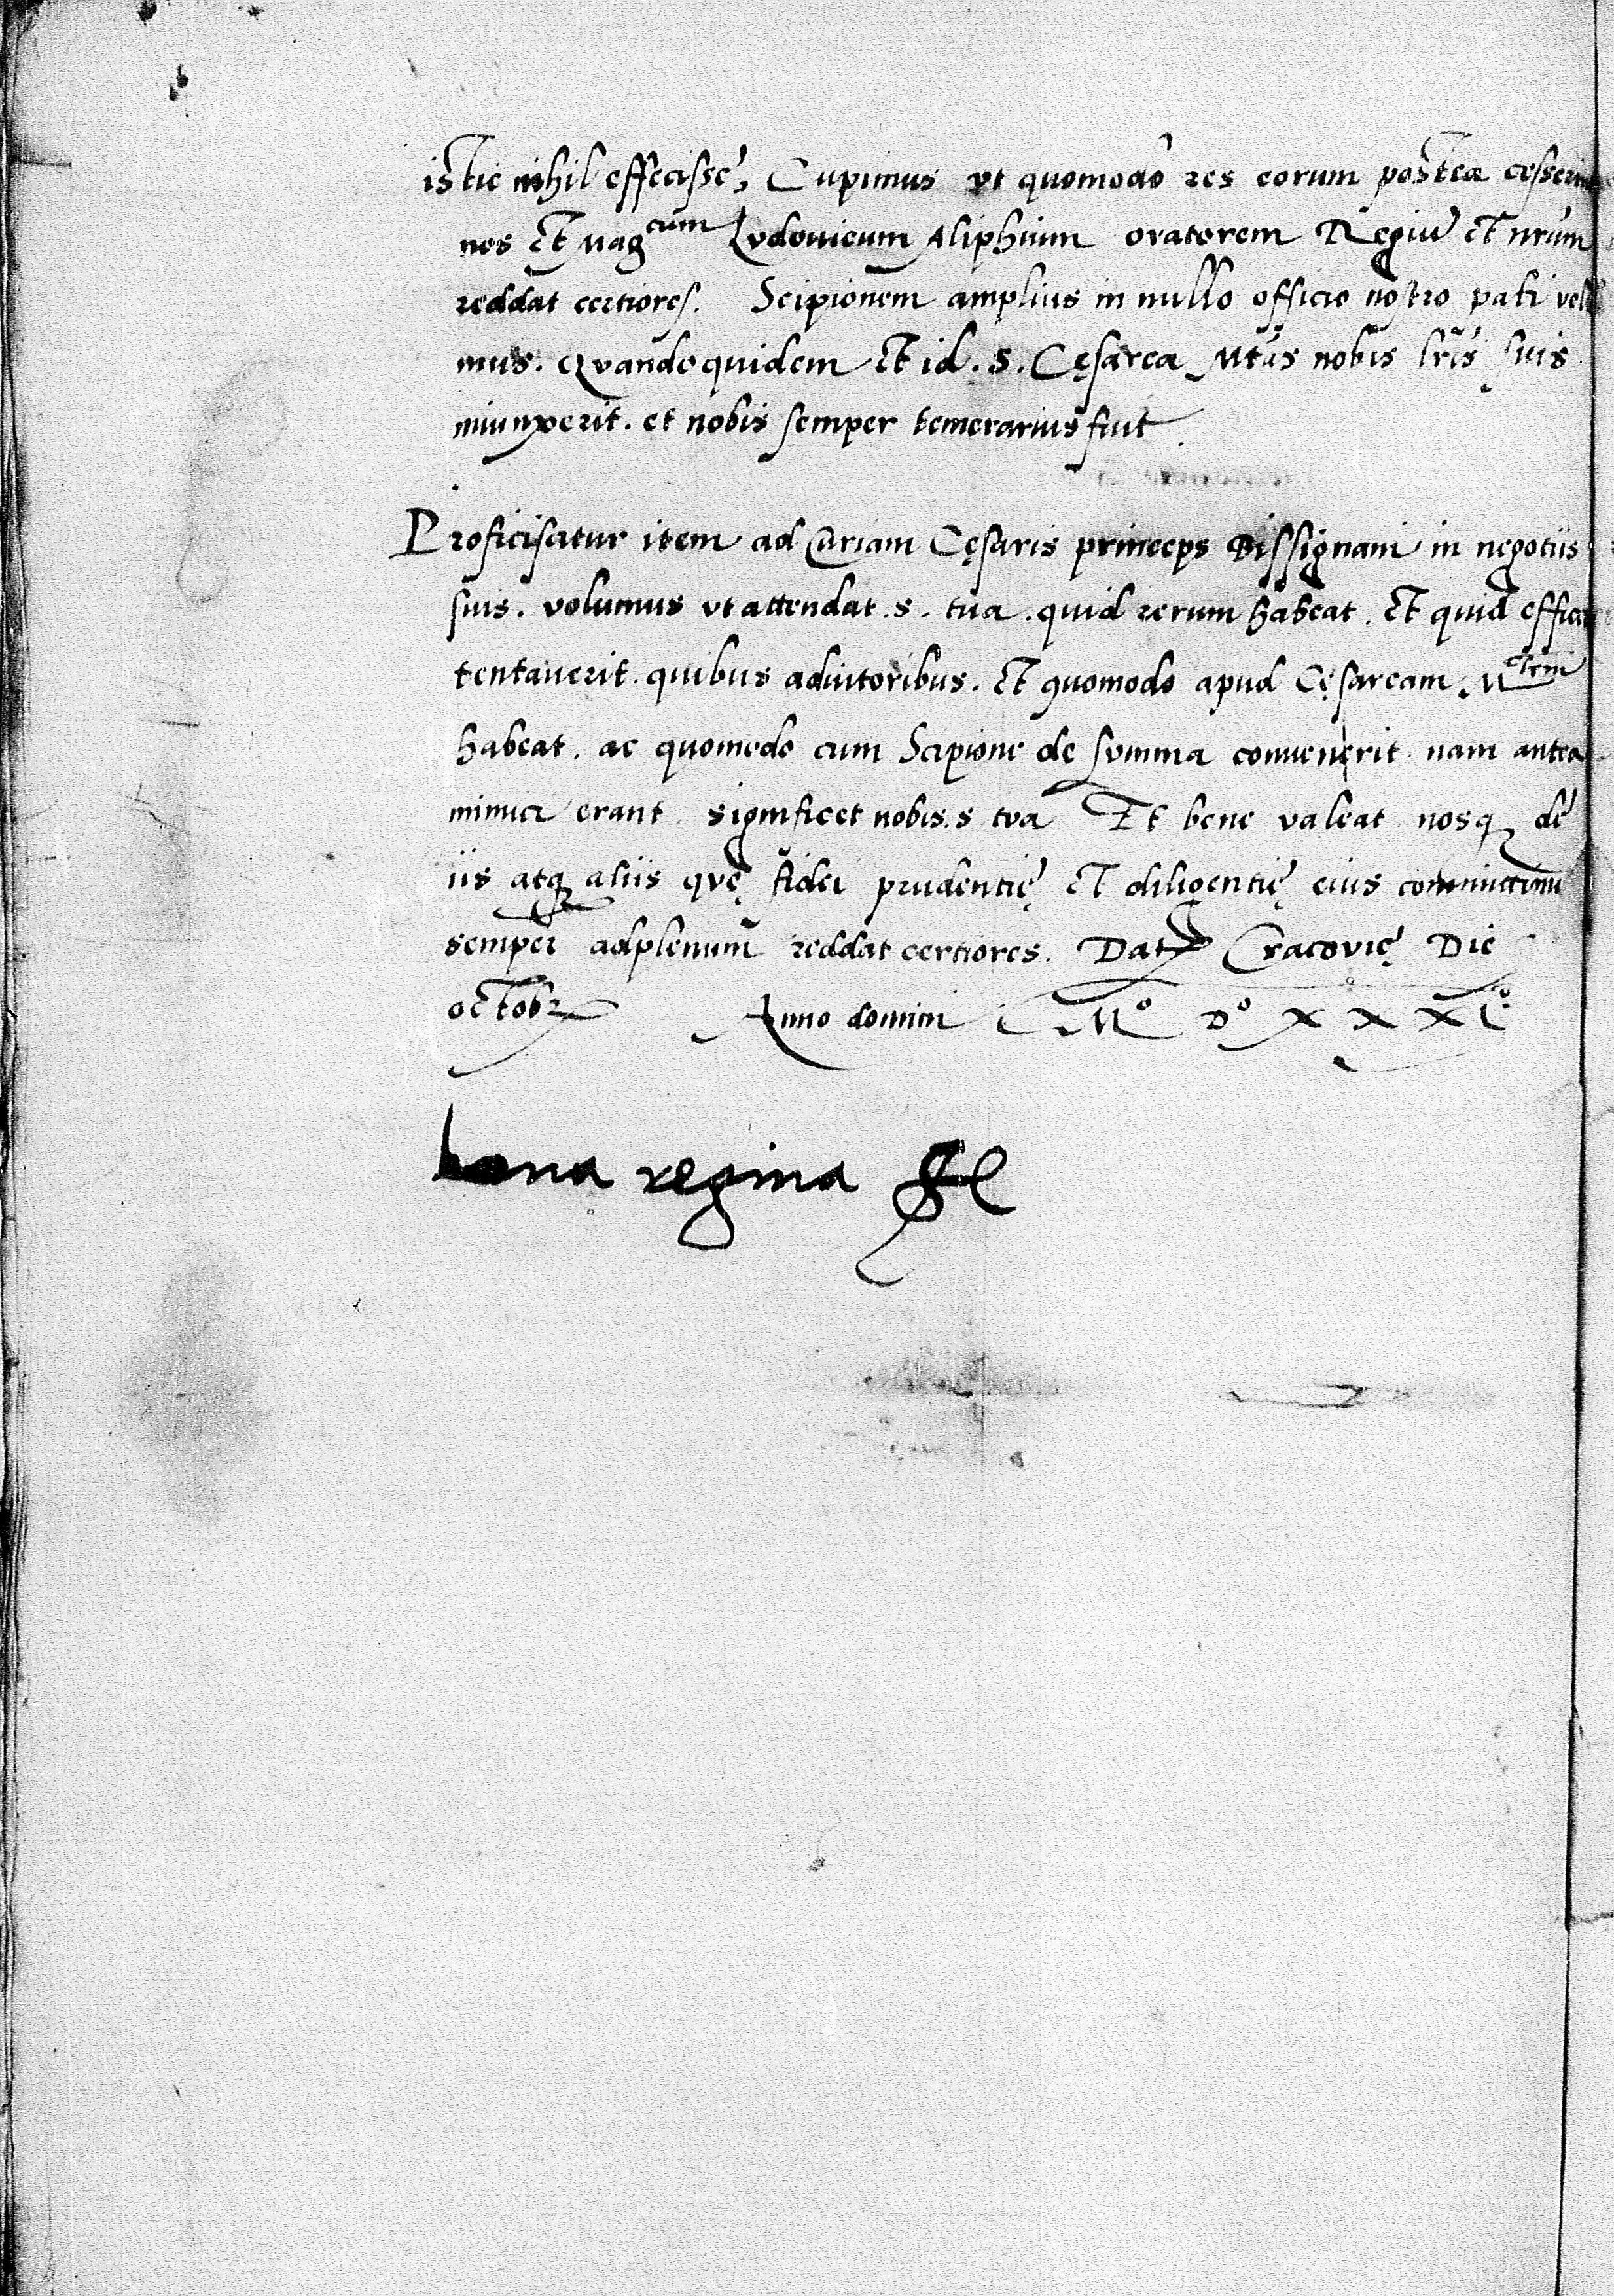 istic nihil effecisse, Cupimus vt quomodo res eorum postea cesserint
nos et Mag^cum Ludouicum Aliphium oratorem Regiũ et nr̃um
reddat certiores. Scipionem amplius in nullo officio nostro pati vel
mus. Quandoquidem et id. S. Cęsarea Mtãs nobis lr̃is suis
iniunxerit. et nobis semper temerarius fuit.
Proficiscitur item ad Curiam Cęsaris princeps Bissignani in negotiis
suis. volumus vt attendat. s. tua. quid rerum habeat. et quid
tentauerit. quibus adiutoribus. et quomodo apud Cęsaream M^tem
habeat. ac quomodo cum Scipione de summa conuenerit. nam antea
inimici erant. significet nobis. s. tua Et bene valeat. nosq de
iis atq aliis quę fidei prudentię et diligentię eius
semper adplenum reddat certiores. Dat Cracovię Die
octobr Anno domini M° D° XXX
bona regina